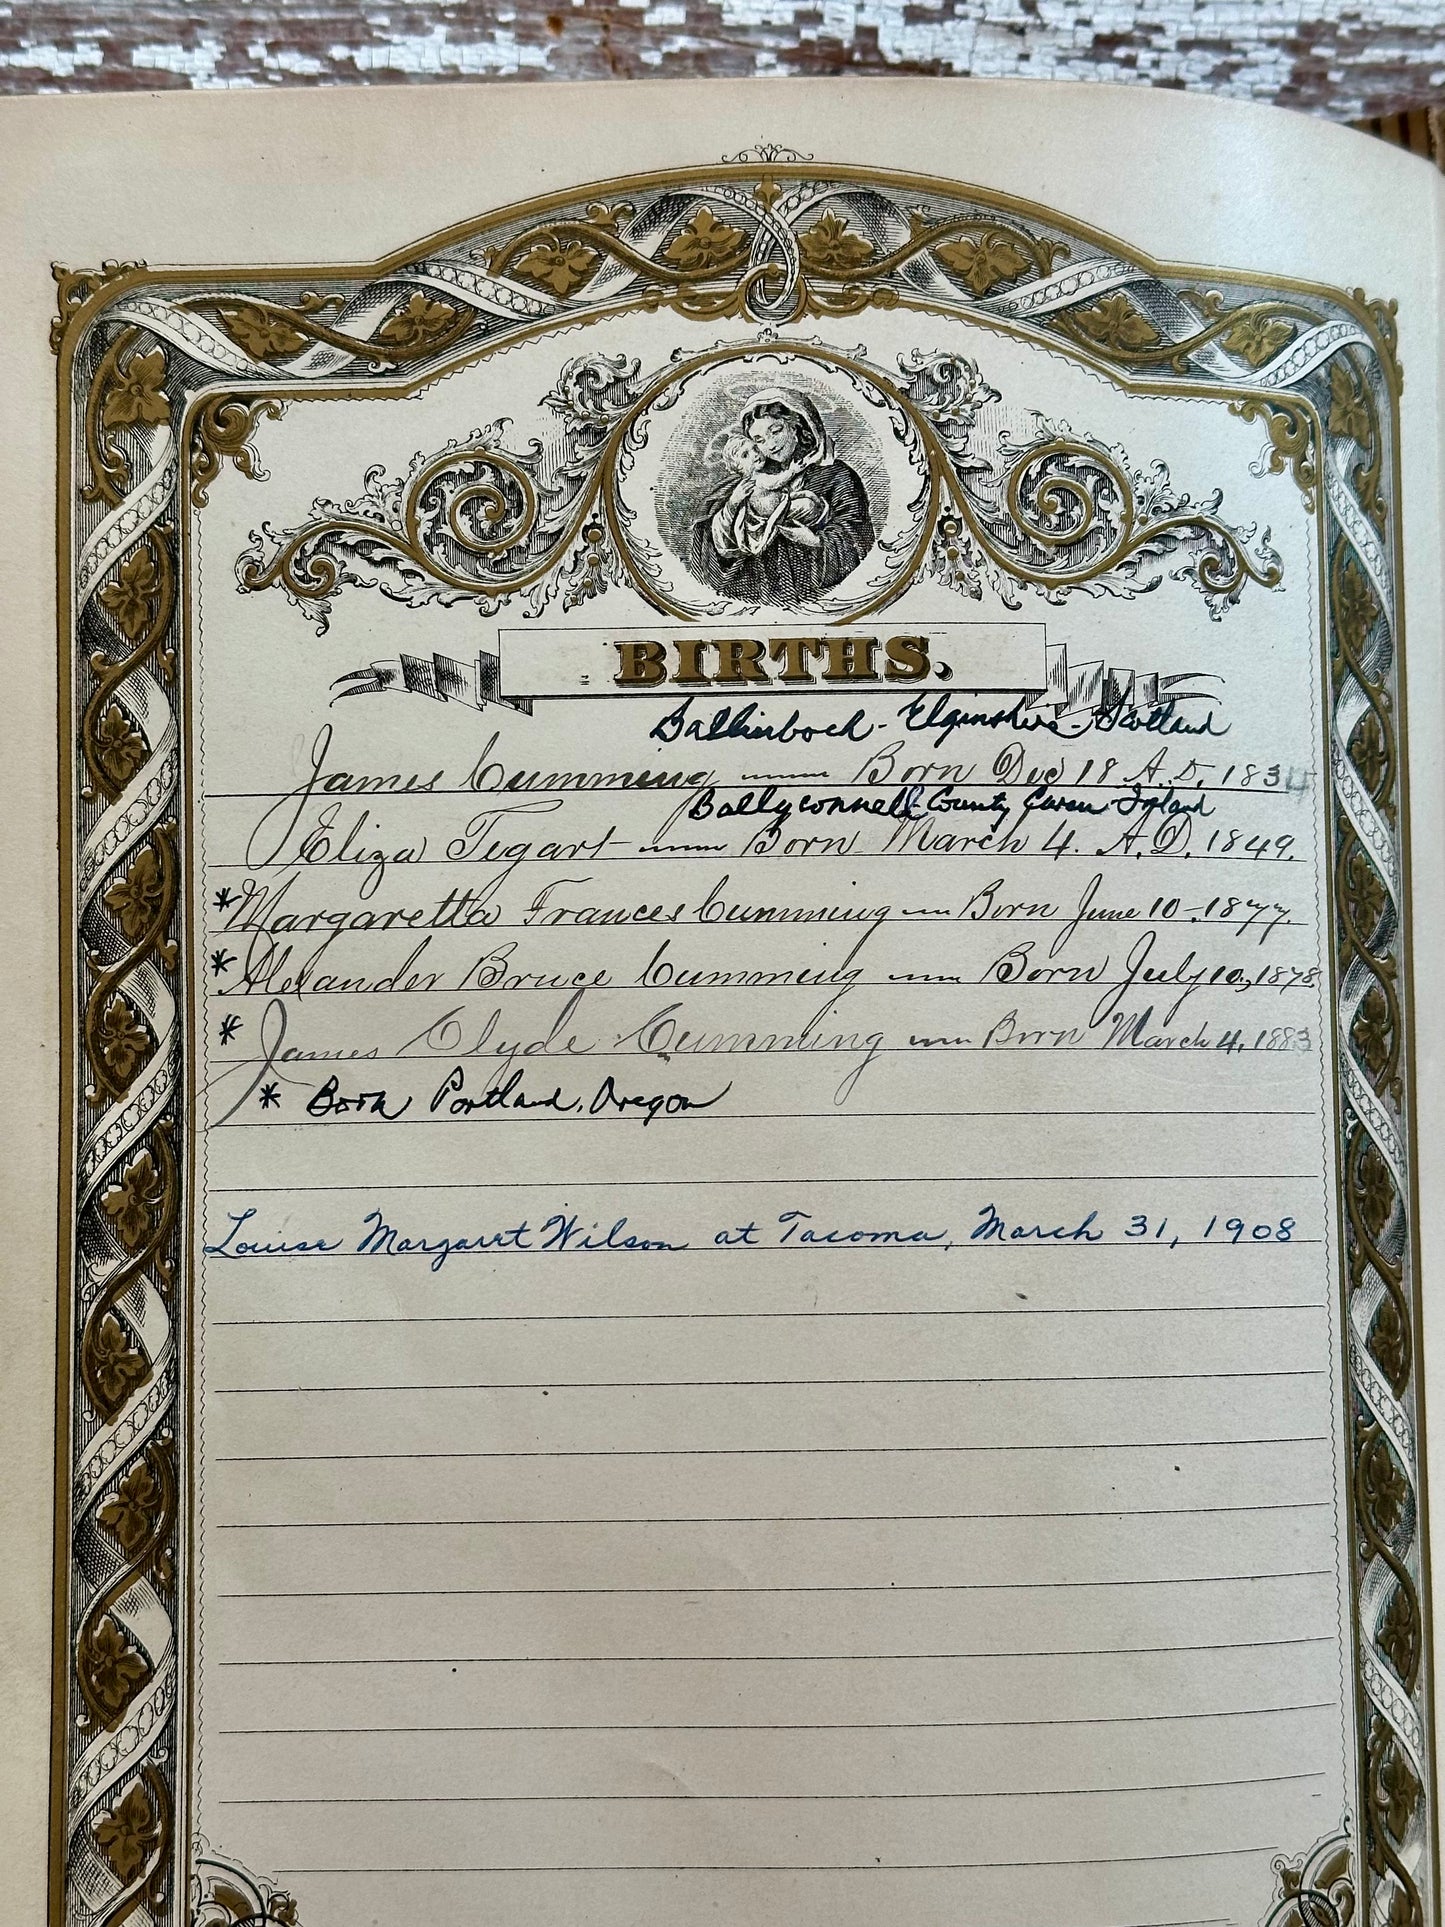 BIRTHS.
Ballinboch - Elginshire - Scotland
James Cumming Born Dec 18 A.D. 183
Ballyconnell County Cavan Ireland
Eliza Tegart Born March 4. A.D. 1849.
*Margaretta Frances Cumming Born June 10-1877.
*Alexander Bruce Cumming Born July 10, 1878.
* James Clyde Cumming Born March 4, 1883
* Born Portland, Oregon
Louise Margaret Wilson at Tacoma, March 31, 1908